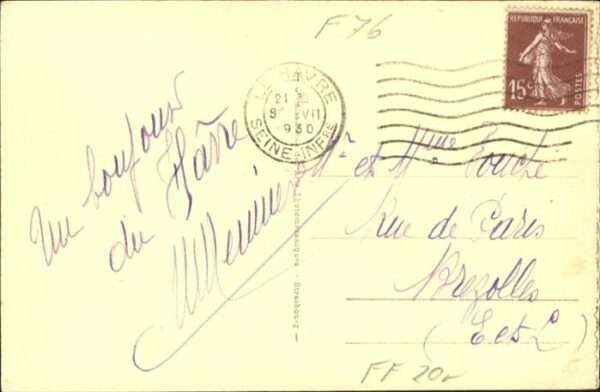 F 76
RÉPUBLIQUE FRANÇAISE
15c
POSTES
LE HAVRE
21
VII
930
SEINE-INFRE
Un bonjour
du Hâvre
Mr et Mme Touche
Rue de Paris
Brezolles
(E et L)
FF 20